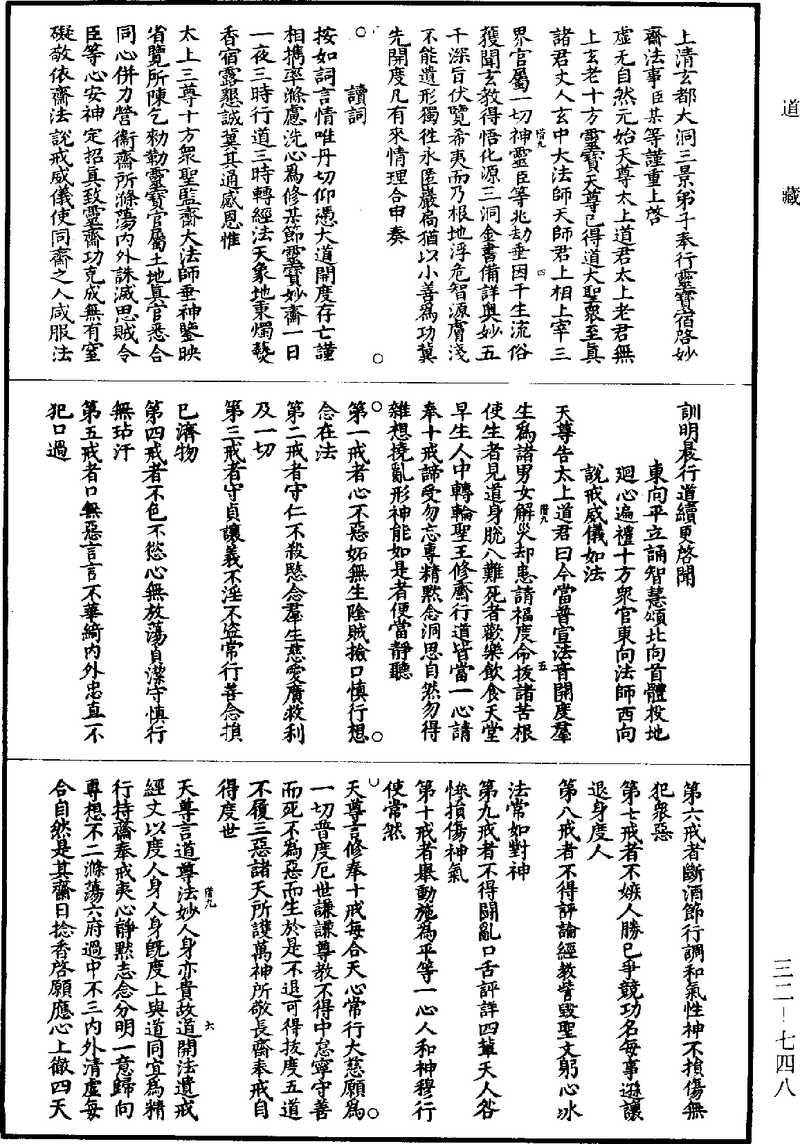 道藏
上清玄都大洞三景弟子奉行靈寶宿啓妙
齋法事臣某等謹重上啓
虛无自然元始天尊太上道君太上老君無
上玄老十方靈寶天尊已得道大聖衆至真
諸君丈人玄中大法師天師君上相上宰三
界官屬一切神靈臣等兆劫垂因千生流俗
獲聞玄教得悟化源三洞金書備詳奧妙五
千深旨伏覽希夷而乃根地浮危智源膚淺
不能遺形獨徃永匿巖扄猶以小善爲功冀
先開度凡有來情理合申奏
讀詞
按如詞言情唯丹切仰憑大道開度存亡謹
相攜率滌慮洗心爲修某節靈寶妙齋一日
一夜三時行道三時轉經法天象地東燭爇
香宿露懇誠冀其通感恩惟
太上三尊十方衆聖監齋大法師垂神鑒映
省覽所陳乞勑勒靈寶官屬土地真官悉合
同心併力營衛齋所滌蕩内外誅滅思賊令
臣等心安神定招真致靈齋功克成無有窒
礙敬依齋法說戒威儀使同齋之人咸服法
訓明晨行道續更啓聞
東向平立誦智慧頌北向首體投地
廻心遍禮十方衆官東向法師西向
說戒威儀如法
天尊告太上道君曰今當普宣法音開度羣
生爲諸男女解災却患請福度命拔諸苦根
使生者見道身脫八難死者歡樂飲食天堂
早生人中轉輪聖王修齋行道皆當一心請
奉十戒諦受勿忘專精默念洞思自然勿得
雜想撓亂形神能如是者便當靜聽
第一戒者心不惡妬無生陰賊撿口慎行想
念在法
第二戒者守仁不殺愍念羣生慈愛廣救利
及一切
第三戒者守貞讓義不淫不盗常行善念損
已濟物
第四戒者不色不慾心無放蕩貞潔守慎行
無玷汙
第五戒者口無惡言言不華綺内外忠直不
犯口過
第六戒者斷酒節行調和氣性神不損傷無
犯衆惡
第七戒者不嫉人勝已爭競功名每事遜讓
退身度人
第八戒者不得評論經教訾毀聖文躬心氷
法常如對神
第九戒者不得鬭亂口舌評詳四輩天人咎
慘損傷神氣
第十戒者舉動施爲平等一心人和神穆行
使常然
天尊言修奉十戒每合天心常行大慈願爲
一切普度厄世謙謙尊教不得中怠寧守善
而死不爲惡而生於是不退可得拔度五道
不履三惡諸天所護萬神所敬長齋奉戒自
得度世
天尊言道尊法妙人身亦貴故道開法遺戒
經文以度人身人身既度上與道同宜爲精
行持齋奉戒夷心靜默志念分明一意歸向
專想不二滌蕩六府過中不三内外清虛每
合自然是其齋日捻香啓願應心上徹四天
三二—七四八
階九
四
階九
五
階九
六